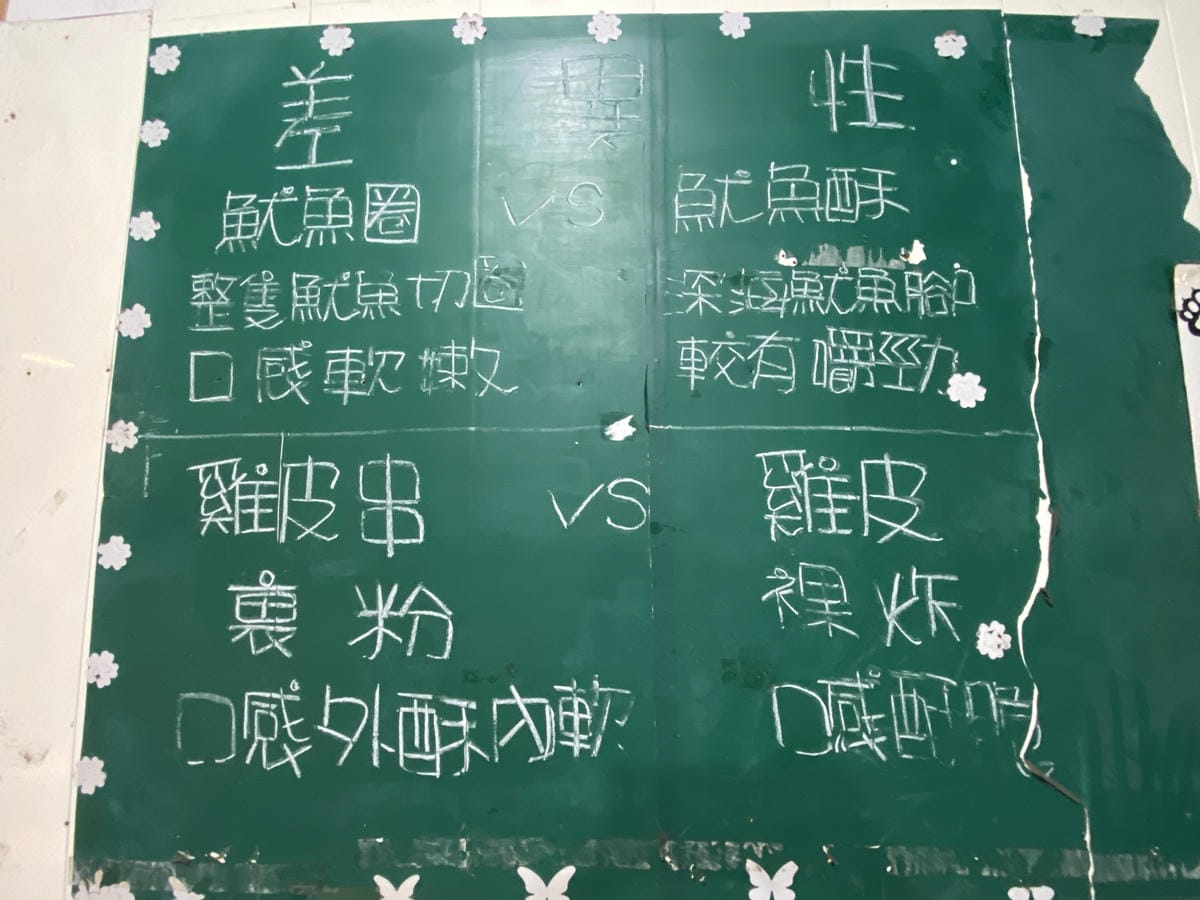 差 異 性
魷魚圈 VS 魷魚酥
整隻魷魚切圈 深海魷魚腳
口感軟嫩 較有嚼勁
雞皮串 VS 雞皮
裏粉 裸炸
口感外酥內軟 口感酥脆